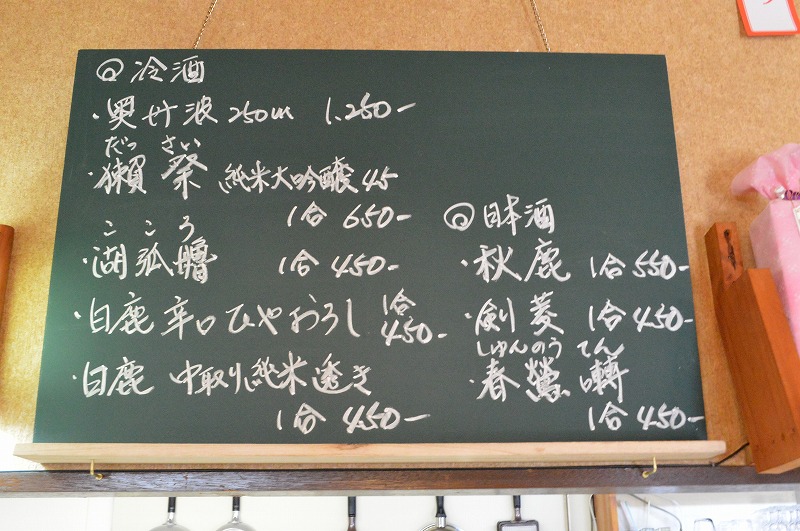 ◎冷酒
・奥丹波 250ml 1.250-
だっ さい
・獺祭 純米大吟醸 45
1合 650-
こころ
・湖弧艪 1合 450-
・白鹿 辛口 ひやおろし 1合 450-
・白鹿 中取り純米 透き
1合 450-
◎日本酒
・秋鹿 1合 550-
・剣菱 1合 450-
しゅんのう てん
・春鶯囀
1合 450-